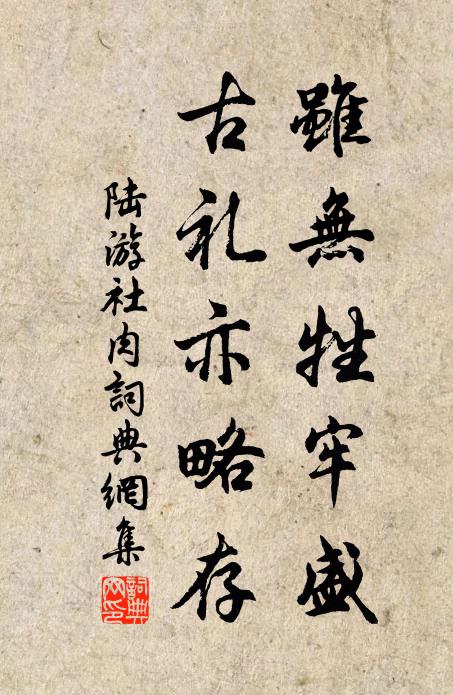 雖無牲牢盛
古礼亦略存
陸游社肉詞典網集
詞典網印